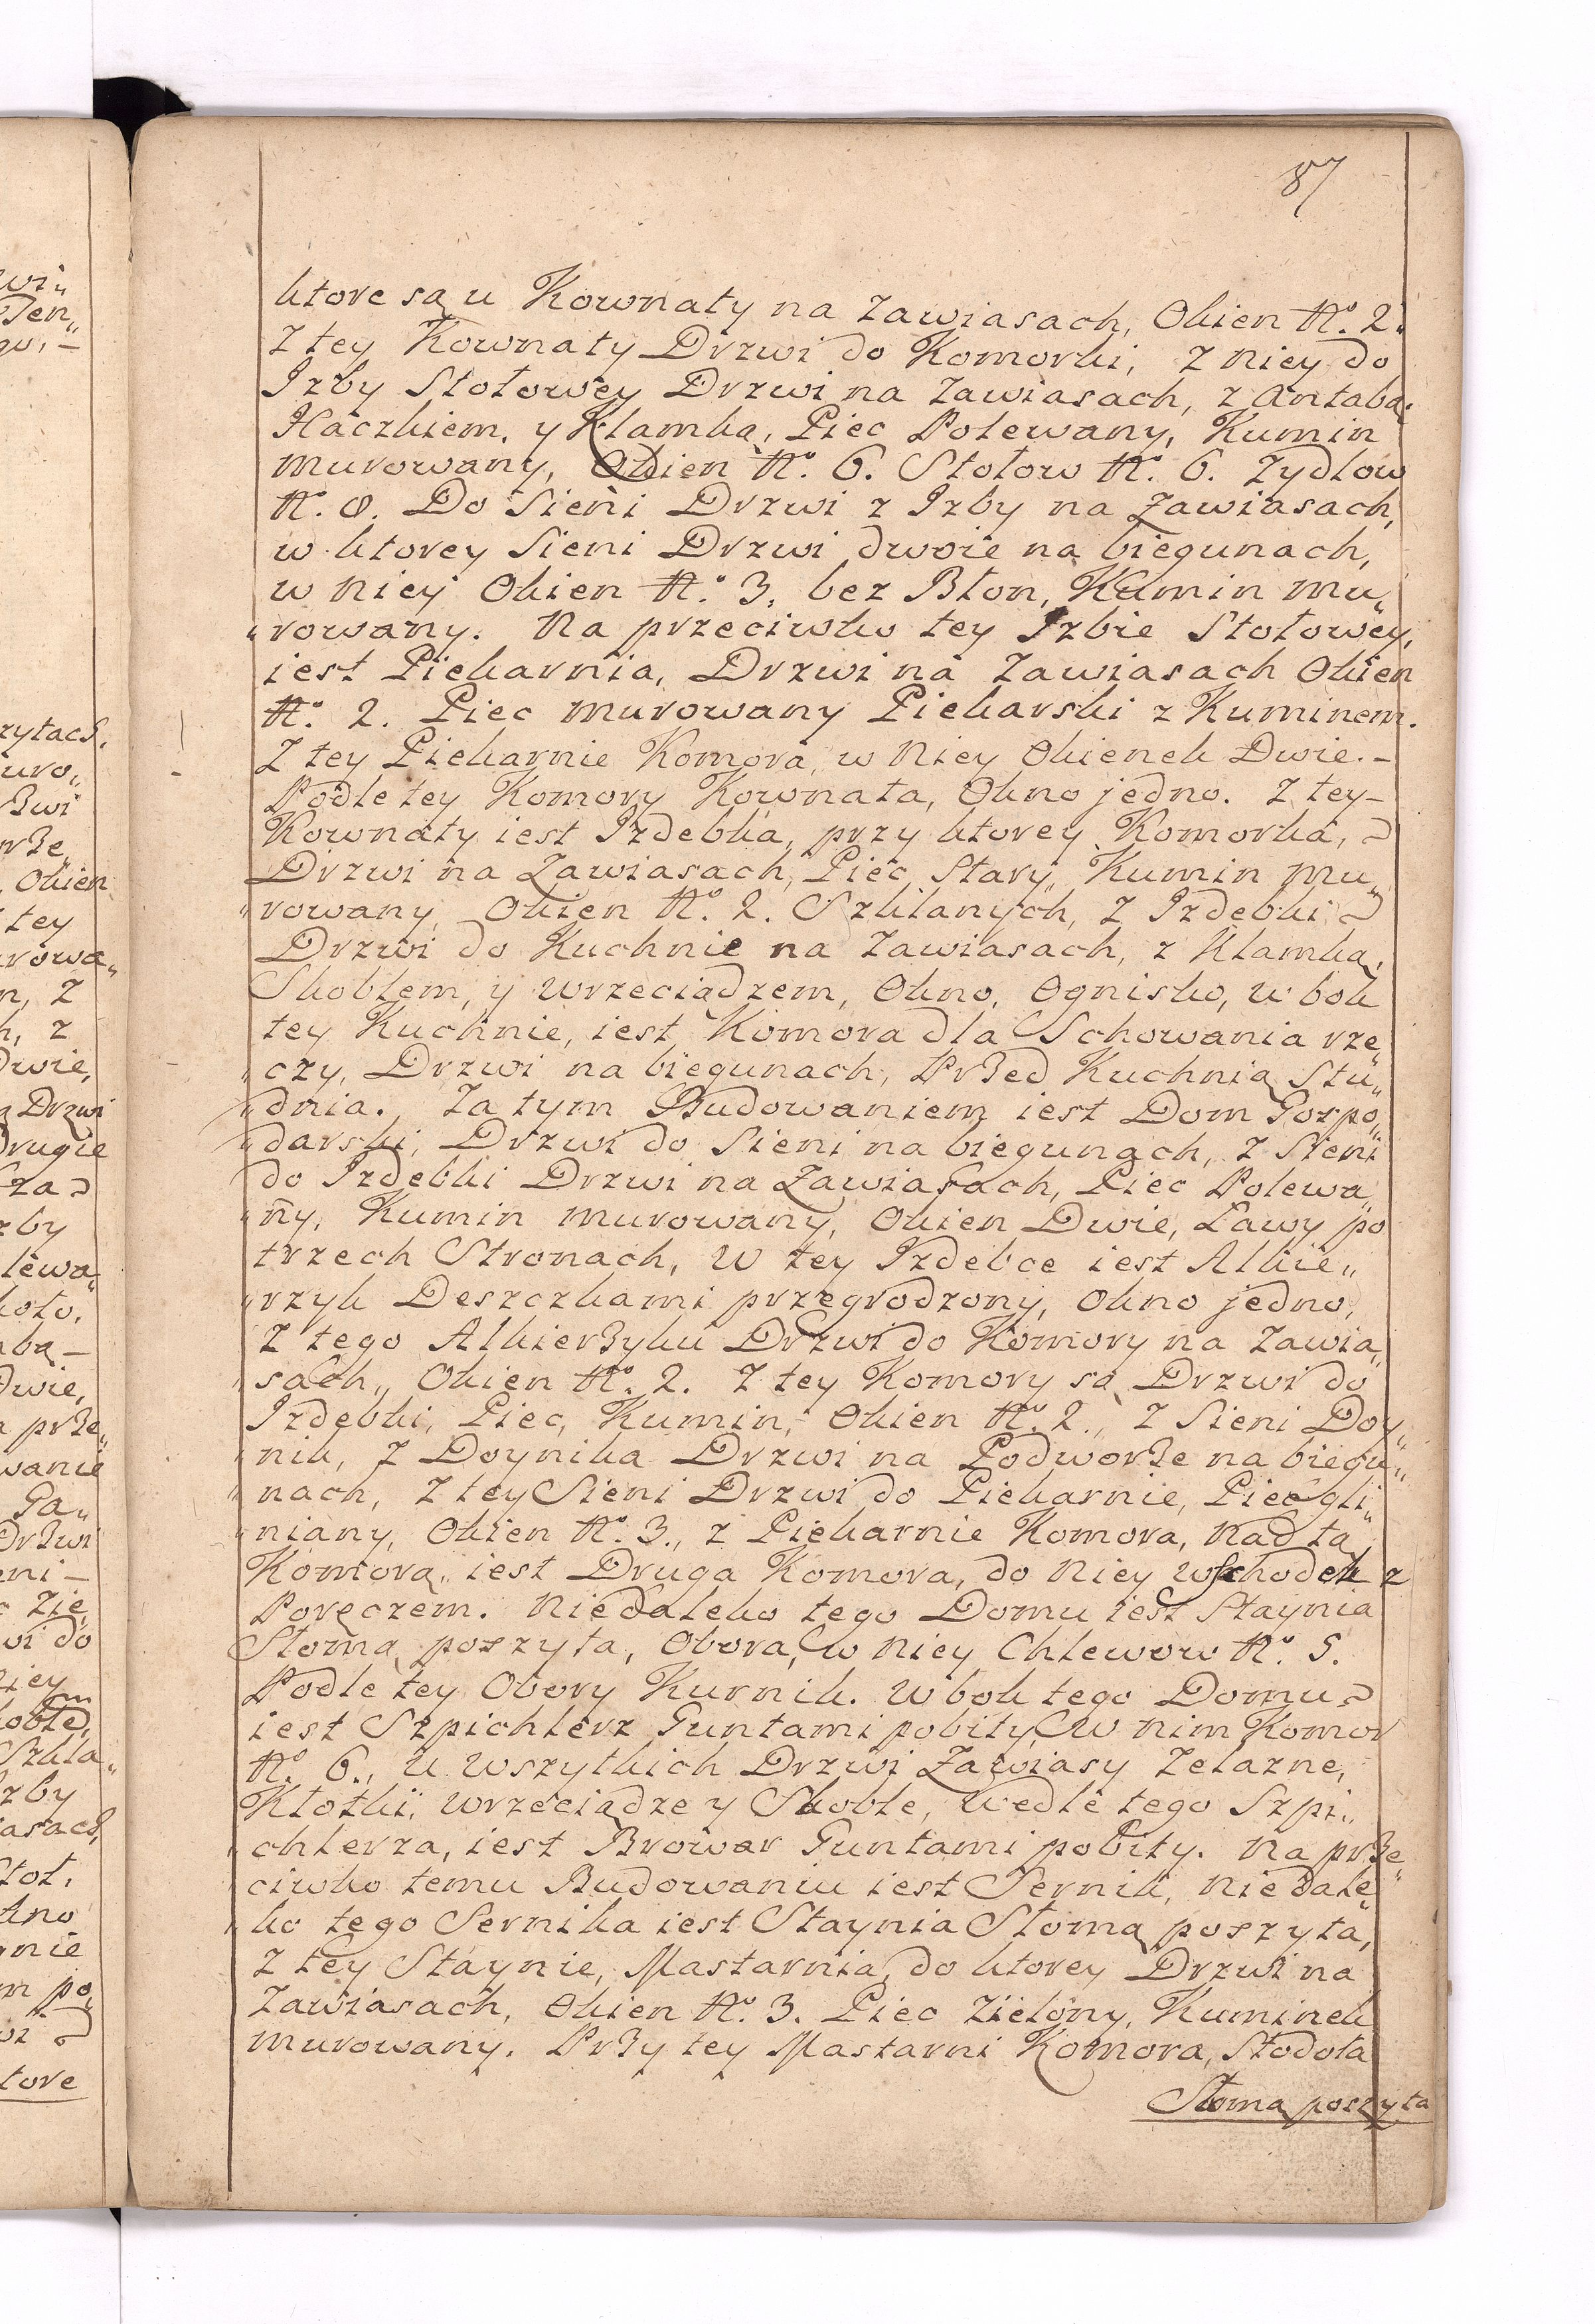 87
ktore są u Kownaty na Zawiasach, Okien No. 2.
Z tey Kownaty Drzwi do Komorki, z niey do
Izby Stołowey Drzwi na Zawiasach, z Antabą.
Haczkiem, y Klamką, Piec Polewany, Kumin
murowany, Okien No. 6. Stołow No. 6. Zydlow
No. 8. Do Sieni Drzwi z Izby na Zawiasach,
w ktorey Sieni Drzwi dwoie na biegunach,
w niey Okien No. 3. bez Błon, Kumin mu„
„rowany. Na przeciwko tey Izbie Stołowey,
iest Piekarnia, Drzwi na Zawiasach Okien
No. 2. Piec murowany Piekarski z Kuminem.
Z tey Piekarnie Komora, w niey Okienek Dwie.-
Podle tey Komory Kownata, Okno jedno. Z tey-
Kownaty iest Izdebka, przy ktorey Komorka,
Drzwi na Zawiasach, Piec Stary, Kumin mu„
„rowany, Okien No. 2. Szklanych, z Izdebki
Drzwi do Kuchnie na Zawiasach, z Klamką,
Skoblem, y wrzeciądzem, Okno, Ognisko, w bok
tey Kuchnie, iest Komora dla Schowania rze„
„czy, Drzwi na biegunach, Przed Kuchnią Stu„
„dnia. Za tym Budowaniem iest Dom Gospo„
„darski, Drzwi do Sieni na biegunach, z Sieni
do Izdebki Drzwi na Zawiasach, Piec Polewa„
„ny, Kumin murowany, Okien Dwie, Ławy po
trzech Stronach, w tey Izdebce iest Alkie„
„rzyk Deszczkami przegrodzony, Okno jedno,
Z tego Alkierzyku Drzwi do Komory na Zawia„
„sach, Okien No. 2. Z tey Komory są Drzwi do
Izdebki, Piec, Kumin, Okien No. 2., z Sieni Doy„
„nik, z Doynika Drzwi na Podworze na biegu„
„nach, Z tey Sieni Drzwi do Piekarnie, Piec gli„
„niany, Okien No. 3., z Piekarnie Komora, nad tą
Komorą, iest Druga Komora, do niey Wschodek z
Poręczem. Niedaleko tego Domu iest Staynia
Słomą poszyta, Obora, w niey Chlewow No. 5.
Podle tey Obory Kurnik. W bok tego Domu
iest Szpichlerz Guntami pobity, w nim Komor
No. 6., u wszytkich Drzwi Zawiasy Zelazne,
Kłotki, wrzeciądze y Skoble, Wedle tego Szpi„
chlerza, iest Browar Guntami pobity. Na prze„
ciwko temu Budowaniu iest Sernik, nie dale„
„ko tego Sernika iest Staynia Słomą poszyta,
Z tey Staynie, Mastarnia, do ktorey Drzwi na
Zawiasach, Okien No. 3. Piec Zielony, Kuminek
murowany. Przy tey Mastarni Komora, Stodoła
Słomą poszyta